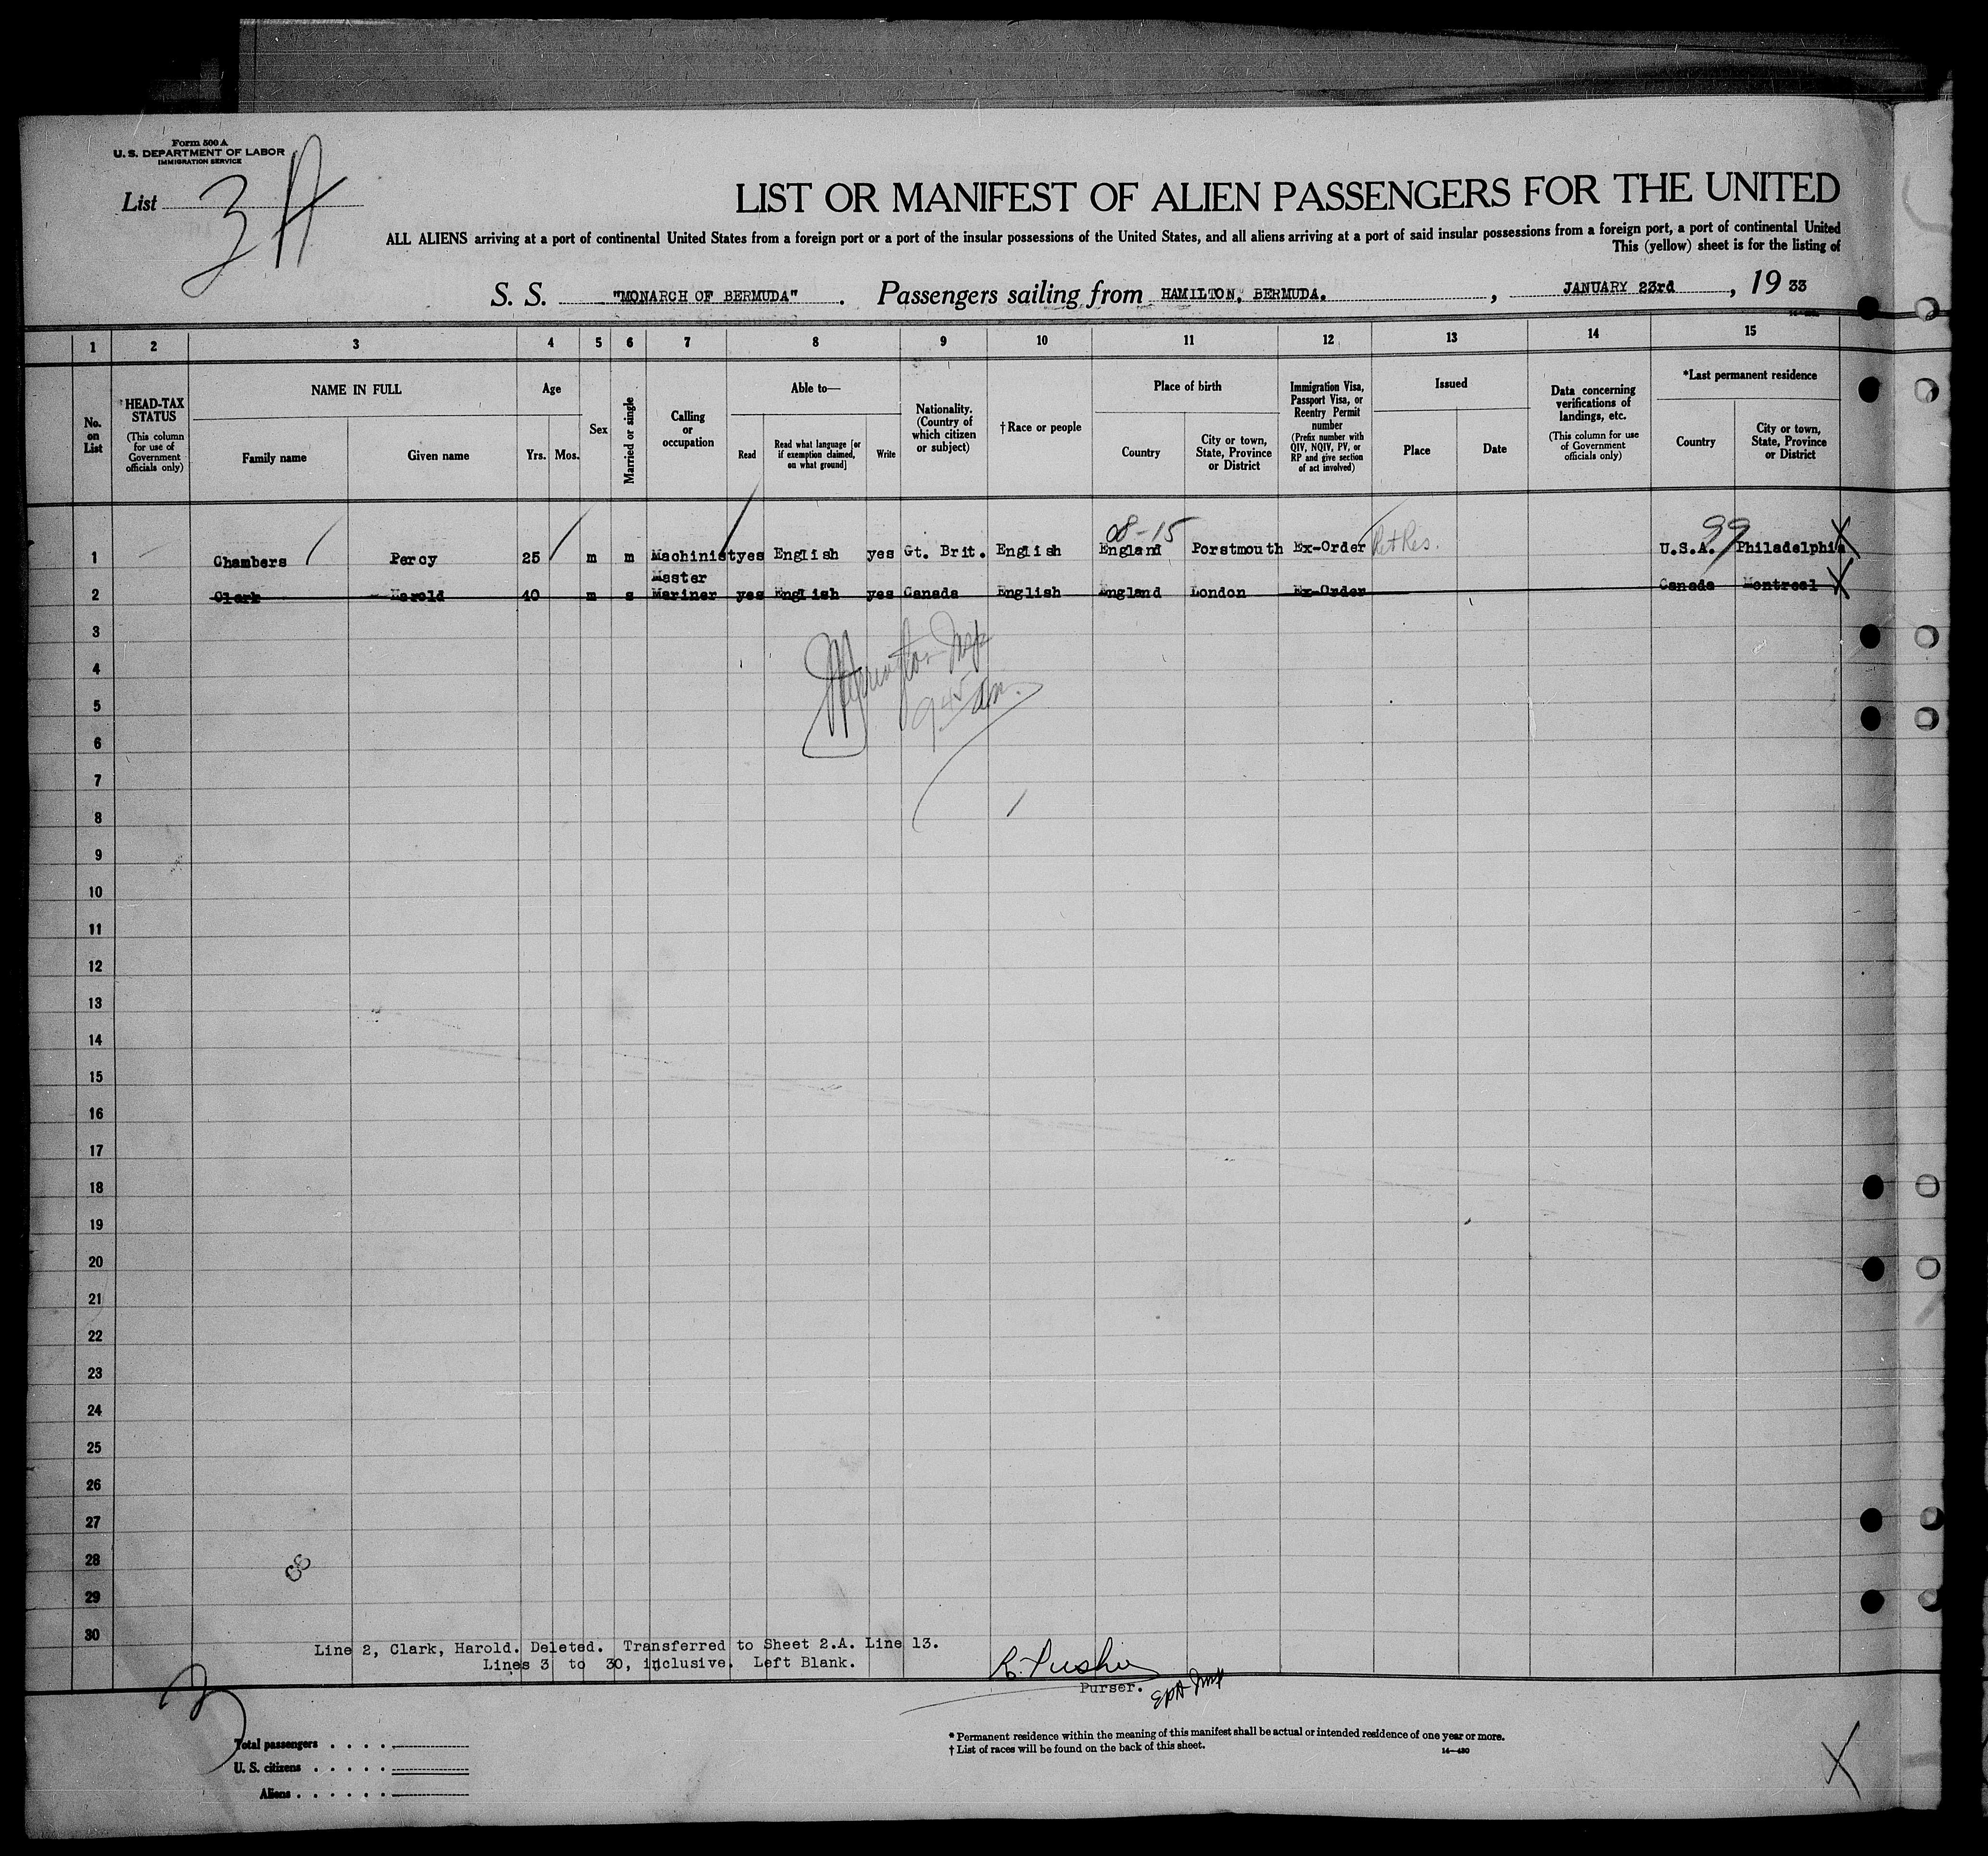 Form 500 A
U. S. DEPARTMENT OF LABOR
IMMIGRATION SERVICE
List 3 A
LIST OR MANIFEST OF ALIEN PASSENGERS FOR THE UNITED
ALL ALIENS arriving at a port of continental United States from a foreign port or a port of the insular possessions of the United States, and all aliens arriving at a port of said insular possessions from a foreign port, a port of continental United
This (yellow) sheet is for the listing of
S. S. "MONARCH OF BERMUDA" . Passengers sailing from HAMILTON, BERMUDA. , JANUARY 23rd , 19 33
1 2 3 4 5 6 7 8 9 10 11 12 13 14 15
No. on List
HEAD-TAX STATUS
(This column for use of Government officials only)
NAME IN FULL
Family name
Given name
Age
Yrs. Mos.
Sex
Married or single
Calling or occupation
Able to—
Read
Read what language [or if exemption claimed, on what ground]
Write
Nationality. (Country of which citizen or subject)
†Race or people
Place of birth
Country
City or town, State, Province or District
Immigration Visa, Passport Visa, or Reentry Permit number
(Prefix number with QIV, NQIV, PV, or RP and give section of act involved)
Issued
Place
Date
Data concerning verifications of landings, etc.
(This column for use of Government officials only)
*Last permanent residence
Country
City or town, State, Province or District
08-15 99
1 Chambers Percy 25 m m Machinist yes English yes Gt. Brit. English England Porstmouth Ex-Order Ret Res. U.S.A. Philadelphia X
Master
2 Clark Harold 40 m s Mariner yes English yes Canada English England London Ex-Order Canada Montreal X
3
4
9 45 am.
5
6
7
8
9
10
11
12
13
14
15
16
17
18
19
20
21
22
23
24
25
26
27
28
29
30
Line 2, Clark, Harold. Deleted. Transferred to Sheet 2.A. Line 13.
Lines 3 to 30, inclusive. Left Blank.
Purser.
Total passengers . . . .
U. S. citizens . . . . .
Aliens . . . . . .
* Permanent residence within the meaning of this manifest shall be actual or intended residence of one year or more.
† List of races will be found on the back of this sheet.
14—430
X